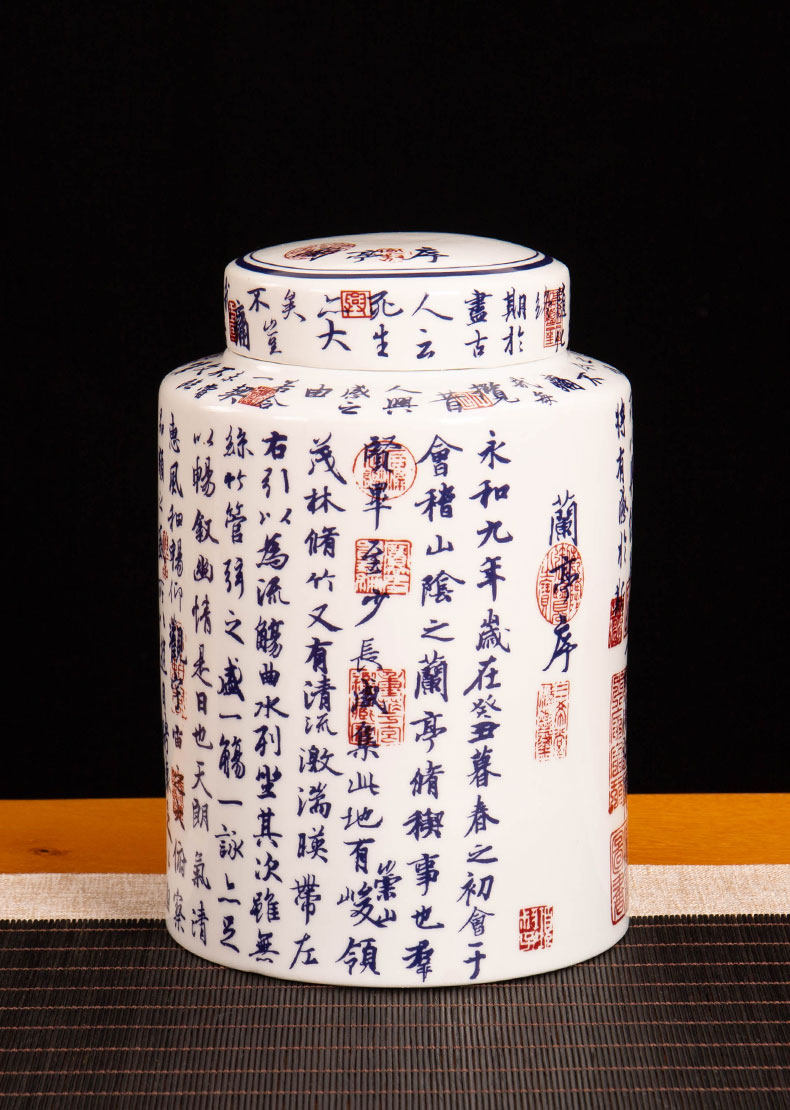 蘭亭序
隨化
終
期於
盡古
人云
死生
亦大
矣
豈
不
痛
每
攬
昔
人興
感之
由
若合
一
契
將有感於
蘭亭序
永和九年歲在癸丑暮春之初會于
會稽山陰之蘭亭脩稧事也羣
賢畢至少長咸集此地有崇山峻領
茂林脩竹又有清流激湍暎帶左
右引以為流觴曲水列坐其次雖無
絲竹管弦之盛一觴一詠亦足
以暢叙幽情是日也天朗氣清
惠風和暢仰觀宇宙之大俯察
品類之盛